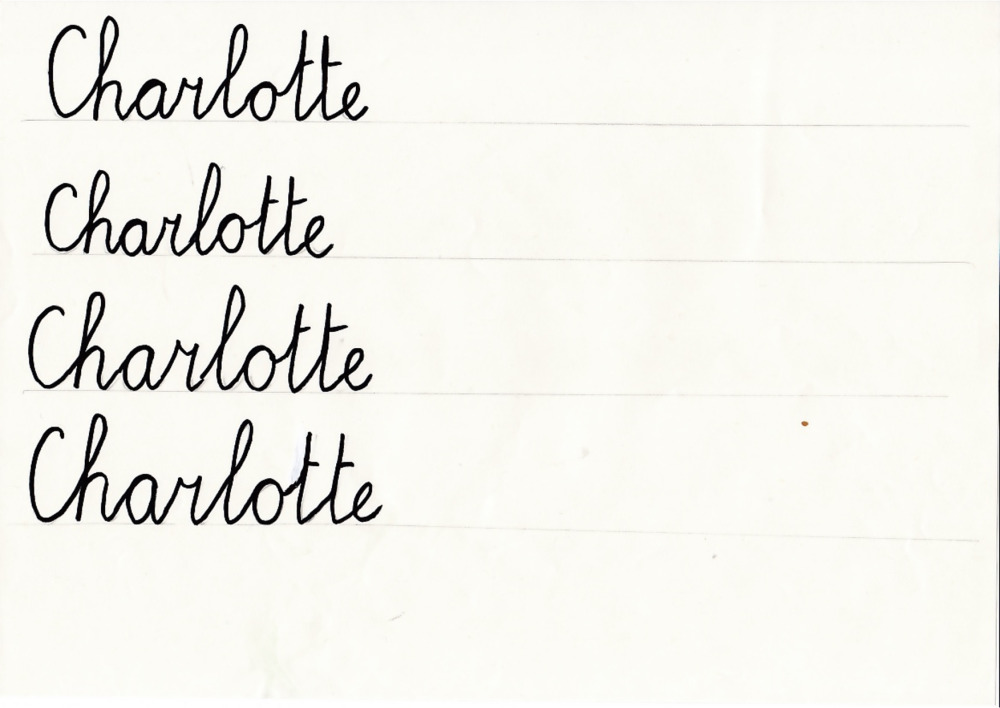 Charlotte
Charlotte
Charlotte
Charlotte